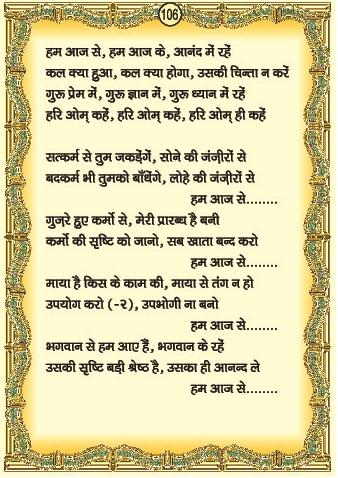 106
हम आज से, हम आज के, आनंद में रहें
कल क्या हुआ, कल क्या होगा, उसकी चिन्ता न करें
गुरु प्रेम में, गुरु ज्ञान में, गुरु ध्यान में रहें
हरि ओम् कहें, हरि ओम् कहें, हरि ओम् ही कहें
सत्कर्म से तुम जकड़ेगें, सोने की जंज़ीरों से
बदकर्म भी तुमको बाँधेंगे, लोहे की जंज़ीरों से
हम आज से........
गुज़रे हुए कर्मो से, मेरी प्रारब्ध है बनी
कर्मो की सृष्टि को जानो, सब खाता बन्द करो
हम आज से........
माया है किस के काम की, माया से तंग न हो
उपयोग करो (-२), उपभोगी ना बनो
हम आज से........
भगवान से हम आए हैं, भगवान के रहें
उसकी सृष्टि बड़ी श्रेष्ठ है, उसका ही आनन्द ले
हम आज से........